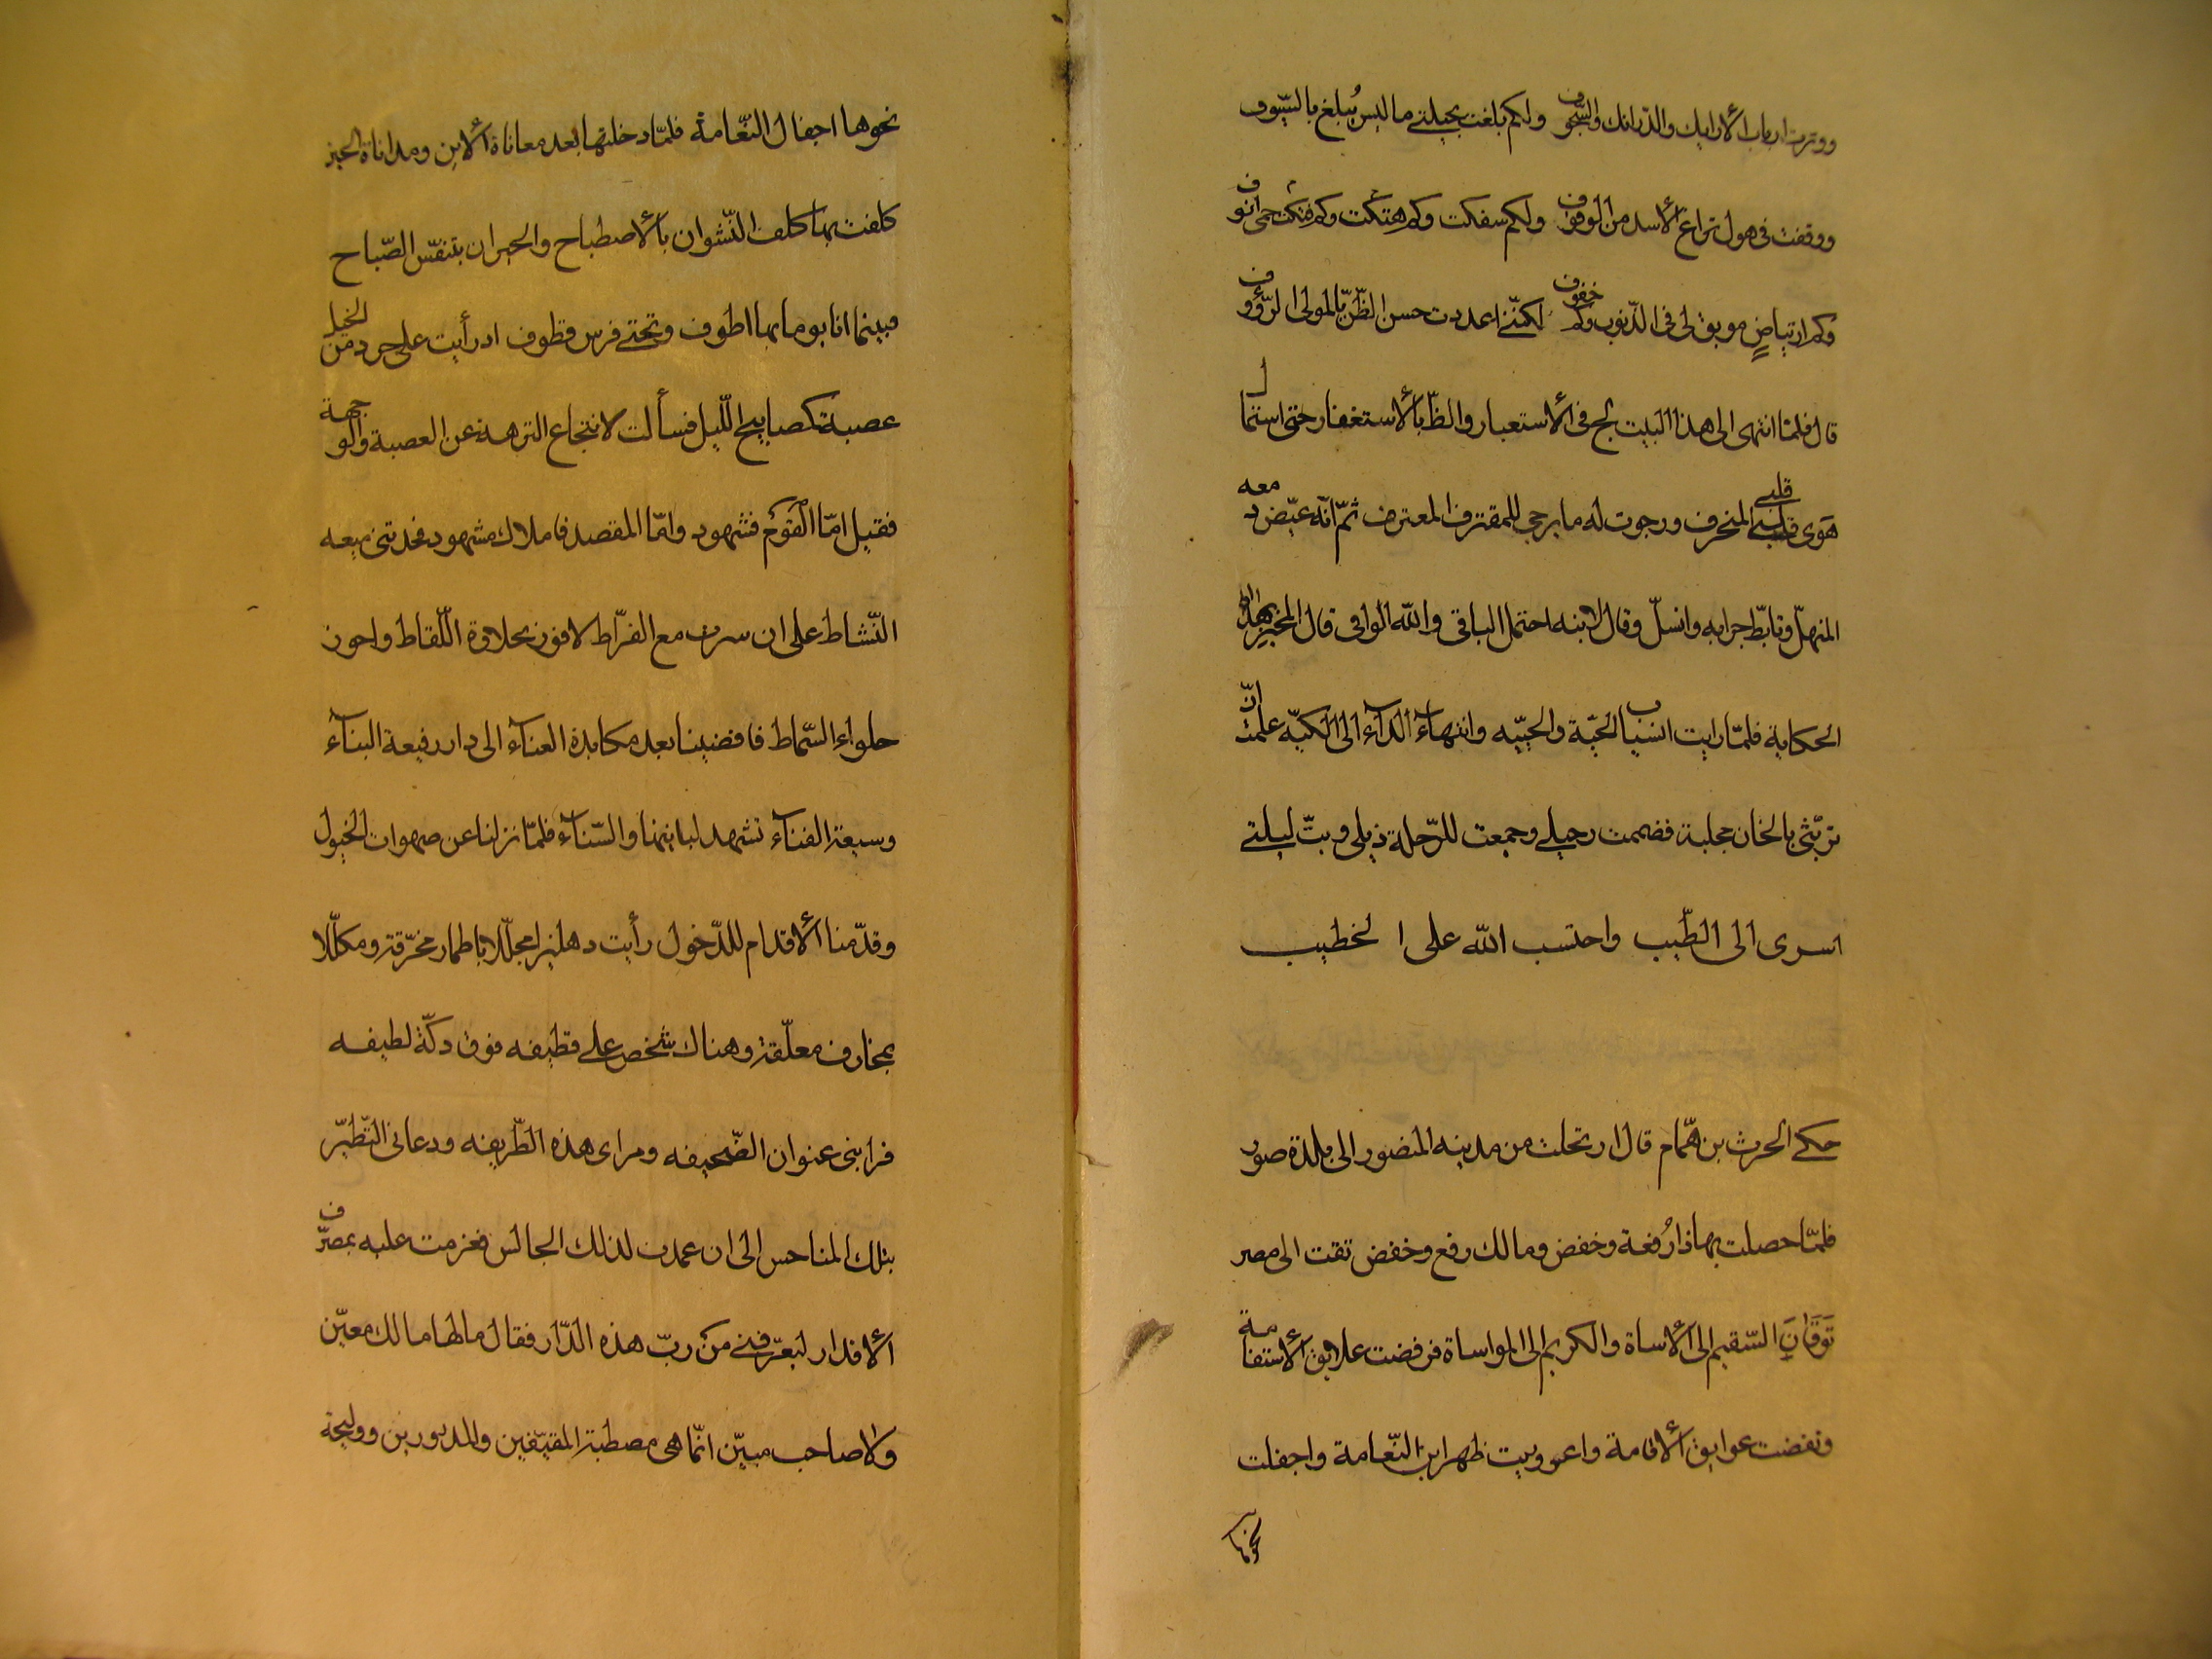 ووترت ارباب الأرايك والدّرانك والسّجوف ولكم بلغت بحيلتي ما ليس يُبلغ بالسّيوف
ووقفت فى هول تراع الأسد من الوقوف ولكم سفكت وكم هتكت وكم فتكت حمى انوف
وكم ارتياضٍ موبق لى فى الذّنوب وكم خفوف لكنّنى اعددت حسن الظّنّ بالمولى الرّؤوف
قال فلمّا انتهى الى هذا البيت لجّ فى الأستعبار والظّ بالأستغفار حتى استمال
هَوى قلبى قلبى المنحرف ورجوت له ما يرجى للمقترف المعترف ثمّ انّه غيّض دمعه
المنهلّ وتابّط جرابه وانسلّ وقال لابنه احتمل الباقى والله الواقى قال المخبر بهذه
الحكاية فلمّا رايت انسياب الحيّة والحييّه وانتهاء الدآء الى الكيّه علمت انّ
تربّثى بالخان مجلبة فضممت رحيلى وجمعت للرّحلة ذيلى وبتّ ليلتى
اسرى الى الطّيب واحتسب الله على الخطيب
حكى الحرث بن همّام قال ارتحلت من مدينه المنصور الى بلدة صور
فلمّا حصلت بها ذا رُفعة وخفض ومالك رفع وخفض تقت الى مصر
تَوَقَانَ السّقيم الى الأساة والكريم الى المواساة فرفضت علايق الأستقامة
ونفضت عوايق الأقامة واعروريت ظهر ابن النّعامة واجفلت
نحوها
نحوها اجفال النّعامة فلمّا دخلتها بعد معاناة الأين ومداناة الحين
كلفت بها كلف النّشوان بالأصطباح والحيران بتنفّس الصّباح
فبينما انا يوما بها اطوف وتحتى فرس قطوف اذ رأيت على جرد من الخيل
عصبة كمصابيح اللّيل فسألت لانتجاع النزهة عن العصبة والوجهة
فقيل امّا القوم فشهود وامّا المقصد فاملاك مشهود فحدتنى ميعه
النّشاط على ان سرت مع الفرّاط لافوز بحلاوة اللّقاط واحوز
حلواء السّماط فافضينا بعد مكابدة العنآء الى دار رفيعة البنآء
وسيعة الفنآء تشهد لبانيها والسّنآء فلمّا نزلنا عن صهوات الخيول
وقدّمنا الأقدام للدّخول رأيت دهليزا مجلّلا باطمار مخرّقة ومكلّلا
بمخارف معلّقة وهناك شخص على قطيفه فوق دكّة لطيفه
فرابنى عنوان الصّحيفه ومراى هذه الطّريفه ودعانى التّطيّر
بتلك المناحس الى ان عمدت لذلك الجالس فعزمت عليه بمصرّف
الأقدار ليعرّفنى من ربّ هذه الدّار فقال ما لها مالك معيّن
ولا صاحب مبيّن انّما هى مصطبة المقيّفين والمدروزين ووليجة